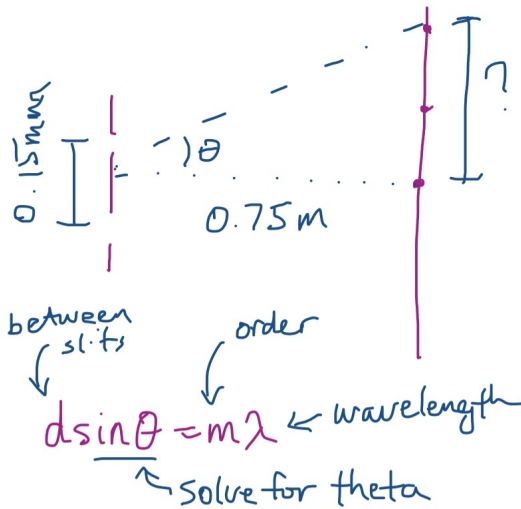 0.15mm
θ
?
0.75m
between
slits
order
dsinθ = mλ
wavelength
solve for theta